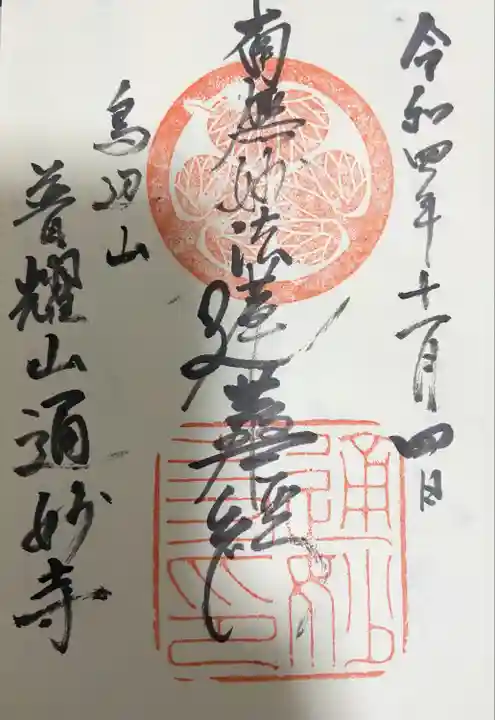 令和四年十一月四日
南無妙法蓮華經
鳥辺山
普耀山通妙寺
通妙寺印